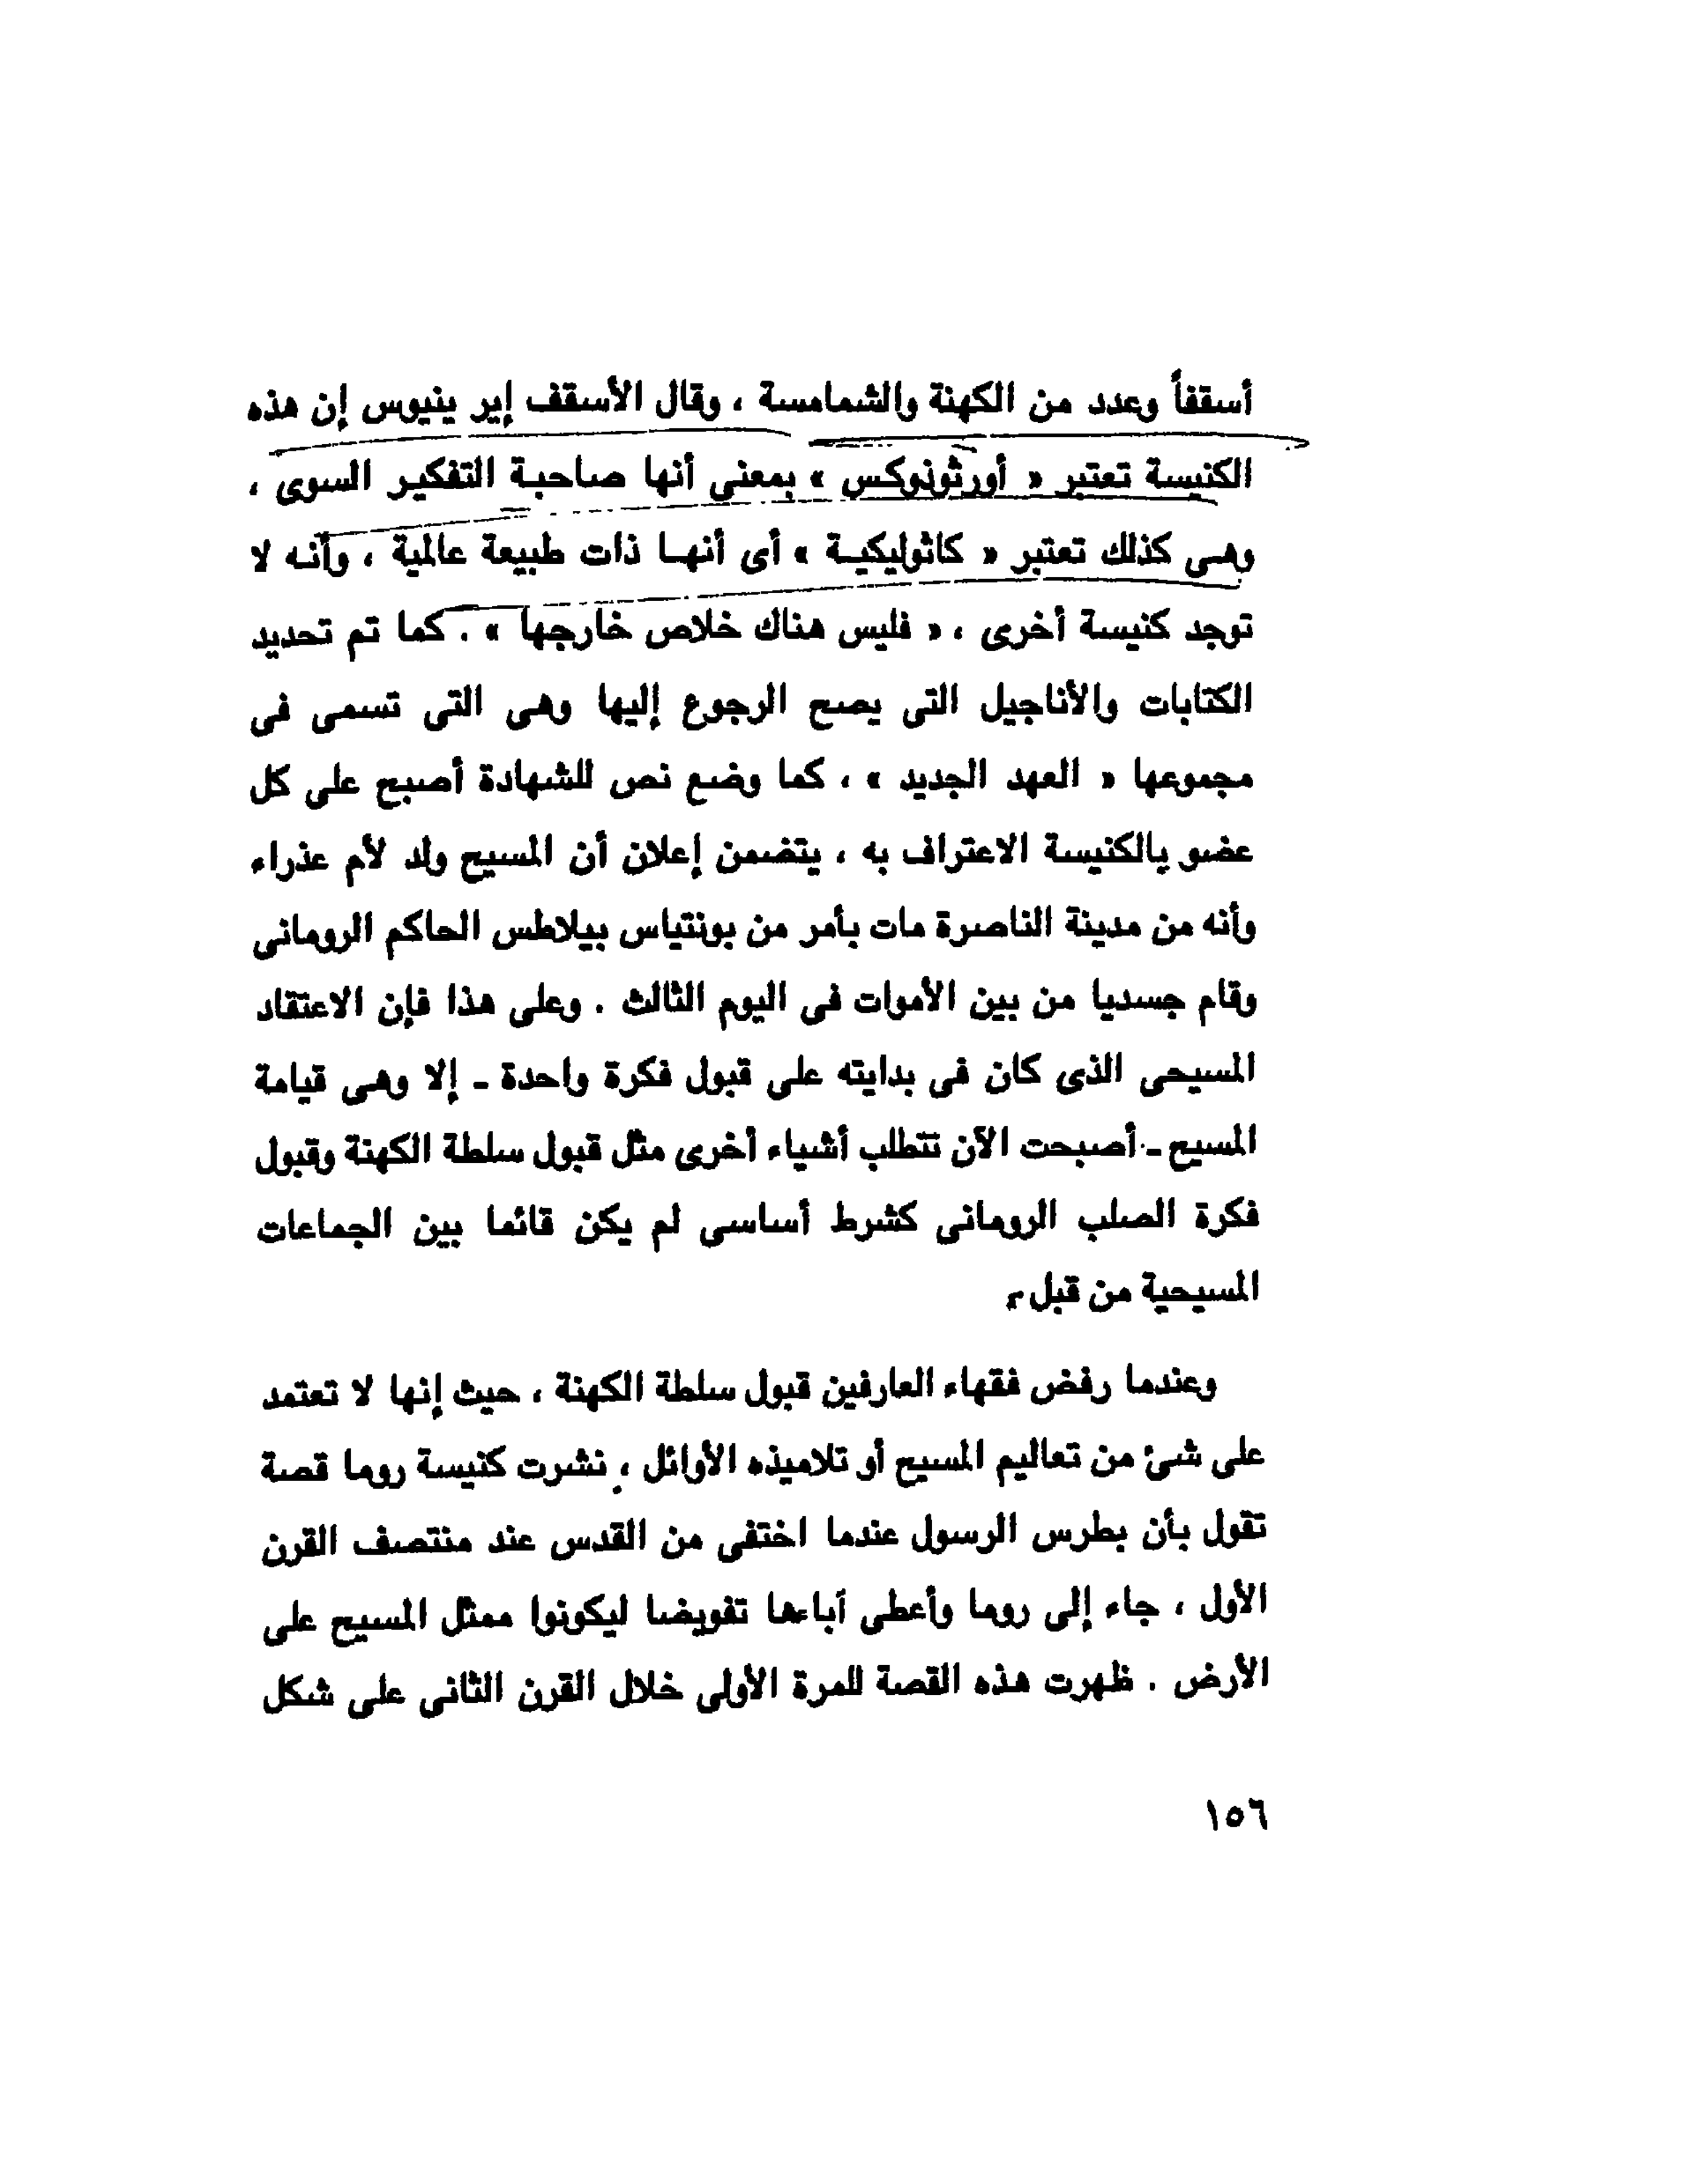 أسقفاً وعدد من الكهنة والشمامسة ، وقال الأسقف إير ينيوس إن هذه
الكنيسة تعتبر « أورثوذوكس » بمعنى أنها صاحبة التفكير السوى ،
وهى كذلك تعتبر « كاثوليكية » أى أنها ذات طبيعة عالمية ، وأنه لا
توجد كنيسة أخرى ، « فليس هناك خلاص خارجها » . كما تم تحديد
الكتابات والأناجيل التى يصح الرجوع إليها وهى التى تسمى فى
مجموعها « العهد الجديد » ، كما وضع نص للشهادة أصبح على كل
عضو بالكنيسة الاعتراف به ، يتضمن إعلان أن المسيح ولد لأم عذراء
وأنه من مدينة الناصرة مات بأمر من بونتياس بيلاطس الحاكم الرومانى
وقام جسديا من بين الأموات فى اليوم الثالث . وعلى هذا فإن الاعتقاد
المسيحى الذى كان فى بدايته على قبول فكرة واحدة ـ إلا وهى قيامة
المسيح ـ أصبحت الآن تتطلب أشياء أخرى مثل قبول سلطة الكهنة وقبول
فكرة الصلب الرومانى كشرط أساسى لم يكن قائما بين الجماعات
المسيحية من قبل
وعندما رفض فقهاء العارفين قبول سلطة الكهنة ، حيث إنها لا تعتمد
على شئ من تعاليم المسيح أو تلاميذه الأوائل ، نشرت كنيسة روما قصة
تقول بأن بطرس الرسول عندما اختفى من القدس عند منتصف القرن
الأول ، جاء إلى روما وأعطى آباءها تفويضا ليكونوا ممثل المسيح على
الأرض . ظهرت هذه القصة للمرة الأولى خلال القرن الثانى على شكل
١٥٦